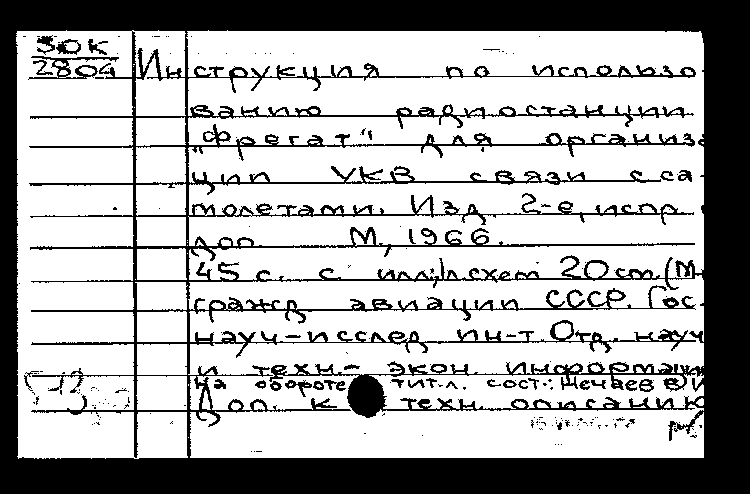 30К
2804
Инструкция по использо-
ванию радиостанции
„Фрегат" для организа
ции УКВ связи с са-
молетами. Изд. 2-е, испр.
доп. М., 1966.
45 с. с илл; 1 л. схем 20 см. (М-
гражд авиации СССР. Гос.
науч-исслед ин-т. Отд. науч
и техн.- экон. информации
На обороте тит. л. сост.: Нечаев В И
Доп. к техн. описанию